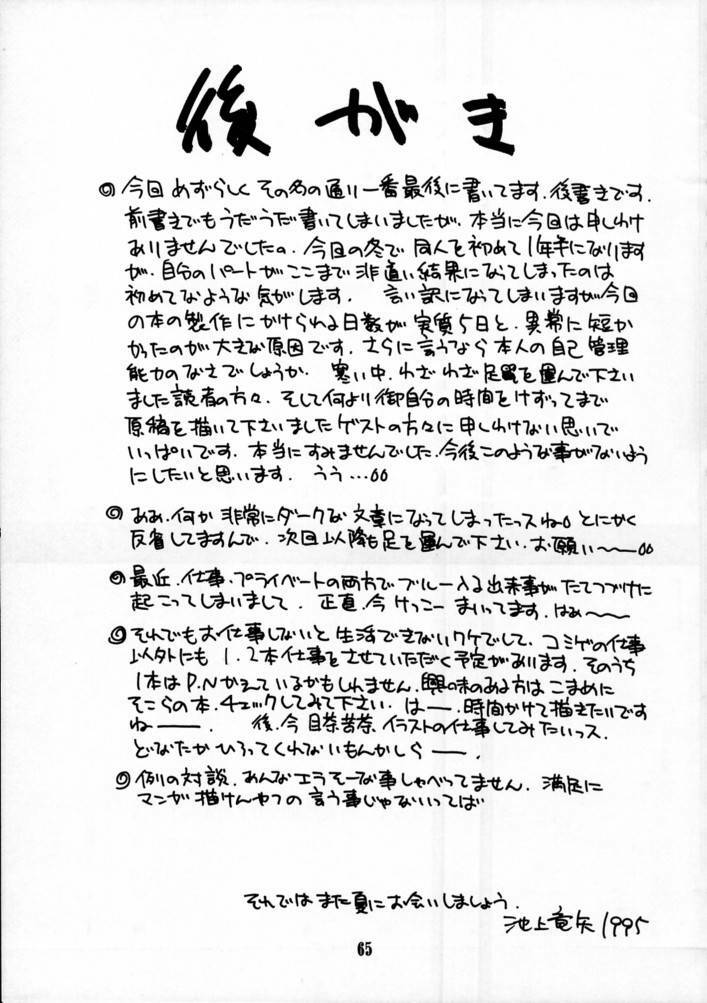 後がき
◎今回めずらしくその名の通り一番最後に書いてます．後書きです．
前書きでもうだうだ書いてしまいましたが．本当に今回は申しわけ
ありませんでしたの．今回の冬で同人を初めて1年半になります
が．自分のパートがここまで非道い結果になってしまったのは
初めてなような気がします．言い訳になってしまいますが今回
の本の製作にかけられる日数が実質5日と．異常に短か
かったのが大きな原因です．さらに言うなら本人の自己管理
能力のなさでしょうか．寒い中．わざわざ足を運んで下さい
ました読者の方々．そして何より御自分の時間をけずってまで
原稿を描いて下さいましたゲストの方々に申しわけない思いで
いっぱいです．本当にすみませんでした．今後このような事がないよう
にしたいと思います．うぅ…。。
◎ああ．何か非常にダークな文章になってしまったっスね。とにかく
反省してますんで．次回以降も足を運んで下さい．お願い〜〜。。
◎最近．仕事．プライベートの両方でブルー入る出来事がたてつづけに
起こってしまいまして．正直．今けっこーまいってます．はぁ〜〜
◎それでもお仕事しないと生活できないワケでして．コミゲの仕事
以外にも1．2本仕事をさせていただく予定があります．そのうち
1本はP.Nかえているかもしれません．興味のある方はこまめに
そこらの本．チェックしてみて下さい．はー．時間かけて描きたいです
ねー．後．今イラストの仕事してみたいっス．
どなたかひろってくれないもんかしらー．
◎例の対談．あんなエラそーな事しゃべってません．満足に
マンガ描けんやつの言う事じゃないってば
それではまた夏にお会いしましょう．
池上竜矢1995
65